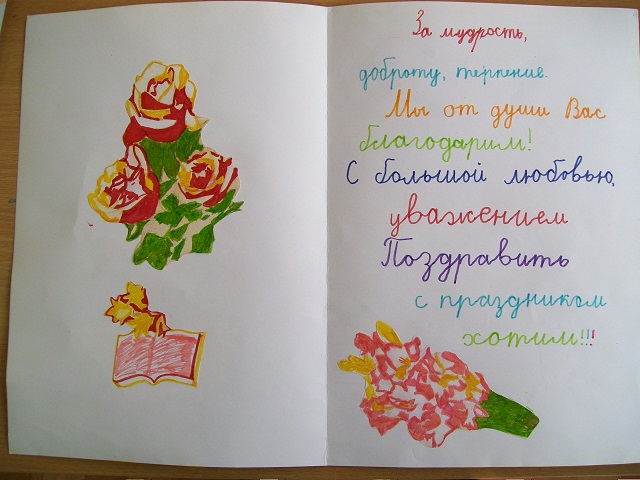 За мудрость,
доброту, терпение.
Мы от души Вас
благодарим!
С большой любовью,
уважением
Поздравить
с праздником
хотим!!!